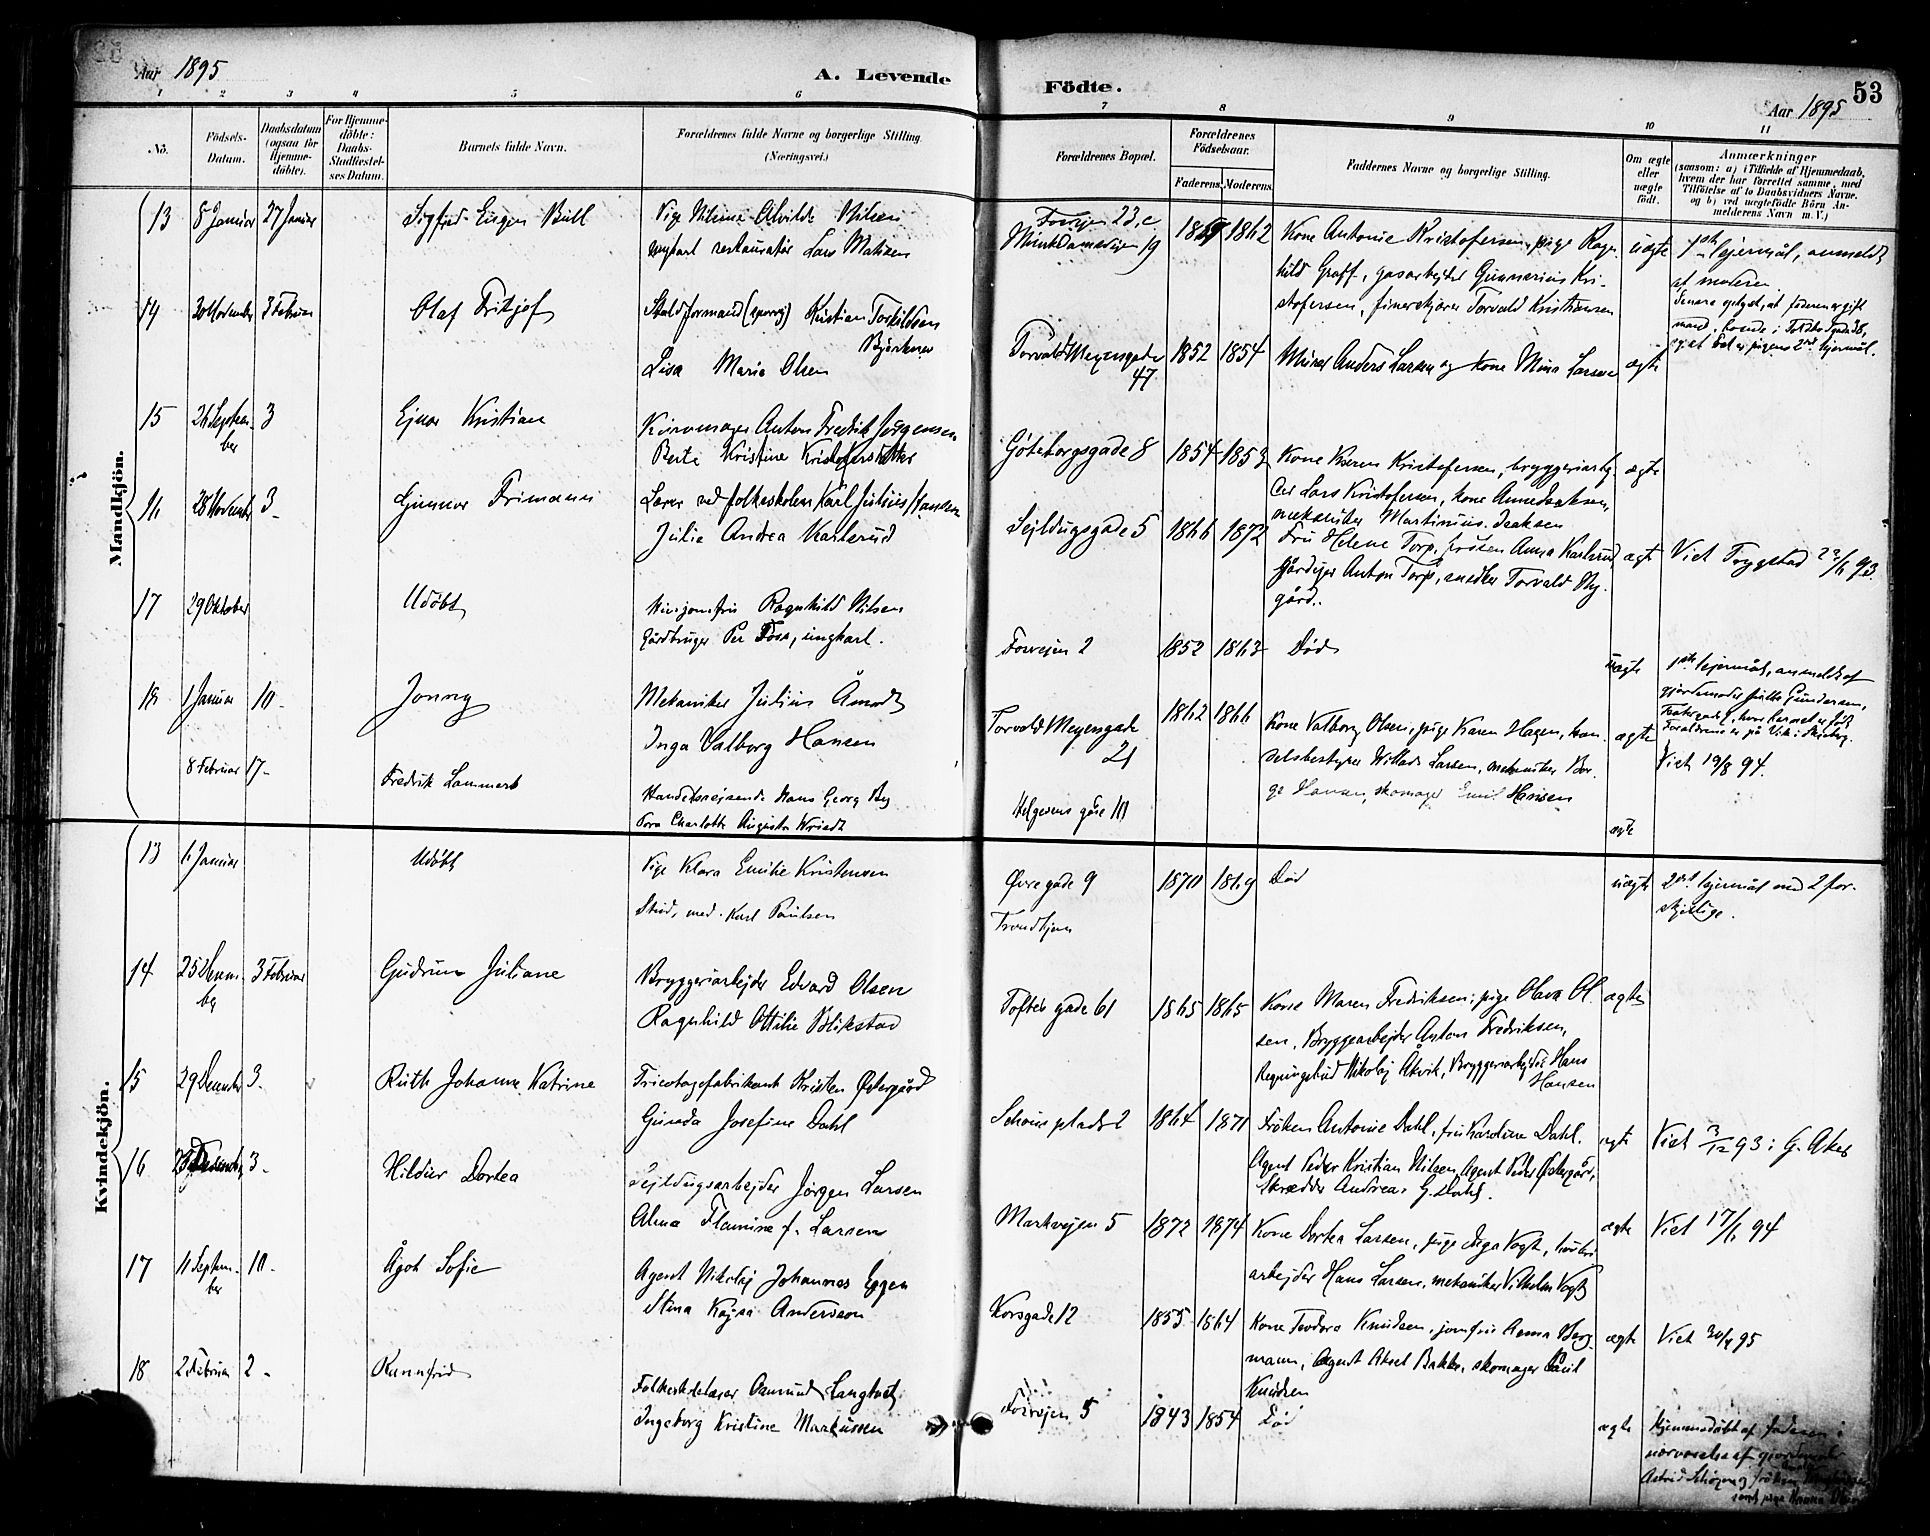 Aar 1895
A. Levende
Födte.
Aar 1895
53
1 2 3 4 5 6 7 8 9 10 11
No.
Födsels-
Datum.
Daabsdatum
(ogsaa for
Hjemme-
döbte).
For Hjemme-
döbte:
Daabs-
Stadfæstel-
ses Datum.
Barnets fulde Navn.
Forældrenes fulde Navne og borgerlige Stilling.
(Næringsvei.)
Forældrenes Bopæl.
Forældrenes
Födselsaar.
Faderens. Moderens.
Faddernes Navne og borgerlige Stilling.
Om ægte
eller
uægte
født.
Anmærkninger
(saasom: a) i Tilfælde af Hjemmedaab,
hvem der har forrettet samme, med
Tilföielse af to Daabsvidners Navne.
og b) ved uægtefödte Börn An-
melderens Navn m. V.)
Mandkjön.
13 8 Januar 27 Januar
Sigfred Eugen Bull
Pige Nilsine Alvilde Nilsen
ungkarl restauratør Lars Madsen
Fossvejen 23, c
Munkdamsvejen 19
1862
Kone Antonie Kristofersen, pige Ragn-
hild Graff, gasarbejder Gunnerius Kri-
stofersen, finerskjærer Torvald Kristiansen
uægte
1ste lejermål, anmeldt
af moderen.
Senere oplyst, at faderen er gift
14 30 November 3 Februar
Olaf Fritjof
Staldformand (sporvej) Kristian Torkildsen
Björkner
Lisa Maria Olsen
Torvald Meyersgade
47
1852 1854
Murer Anders Larsen og kone Mina Larsen
ægte
15 26 Septem-
ber
3
Ejnar Kristian
Anton Fredrik Jørgensen
Berte Kristine Kristofersdatter
Göteborgsgade 8
1854 1853
Kone Karen Kristofersen, bryggeriarbej-
der Lars Kristofersen, kone Anne Isaksen,
mekaniker Martinius Isaksen
ægte
16 28 November 3
Gunnar Frimann
Lærer ved folkeskolen Karl Julius Hansen
Julie Andrea Karlsrud
Sejldugsgade 5
1866 1872
Fru Helene Torp, frøken Anna Karlsrud
gårdejer Anton Torp, snedker Torvald Ny-
gård.
ægte
Viet Trygstad 93.
17 29 Oktober
Udöbt
Ragnhild Nilsen
Gårdbruger Per Foss, ungkarl.
Fossvejen 2
1852 1863
Död
uægte
1ste lejermål, anmeldt af
18 1 Januar 10
Jonny
Mekaniker Julius Åmodt
Inga Valborg Hansen
Torvald Meyersgade
21
1862 1866
Kone Valborg Olsen, pige Karen Hagen, han-
delsbestyrer Willads Larsen, mekaniker Bør-
ge Hansen, skomager Emil Hansen
ægte
Viet 19/8 94.
8 Februar 17
Fredrik Lammert
Handelsrejsende Hans Georg By
Tora Charlotte Augusta Wriedt
Helgesens gade 10
ægte
Kvindekjön.
13 6 Januar
Udöbt
Pige Klara Emilie Kristensen
Stud. med. Karl Paulsen
Øvregade 9
Trondhjem
1870 1869
Död
uægte
2det lejermål med 2 for-
skjellige.
14 25 Decem-
ber
3 Februar
Gudrun Juliane
Bryggeriarbejder Edvard Olsen
Ragnhild Ottilie Blikstad
Toftes gade 61
1865 1865
Kone Maren Fredriksen, pige Olava Ol-
sen, Bryggearbejder Anton Fredriksen,
Regningsbud Nikolaj Åkvik, Bryggeriarbejder Hans
Hansen
ægte
15 29 December 3
Ruth Johanne Katrine
Tricotagefabrikant Kristen Østergård
Gunda Josefine Dahl
Schous plads 2
1864 1871
Frøken Antonie Dahl, fru Karoline Dahl.
Agent Peder Kristian Nilsen, Agent Peder Østergård,
Skrædder Andreas G. Dahl.
ægte
Viet 3/12 93 i G. Aker
16 December 3
Hildur Dortea
Sejldugsarbejder Jörgen Larsen
Alma Flamine f. Larsen
Markvejen 5
1872 1874
Kone Dortea Larsen, pige Inga Vogt,
arbejder Hans Larsen, mekaniker Vilhelm Vogt
ægte
Viet 17/1 94
17 11 Septem-
ber
10
Ågot Sofie
Agent Nikolaj Johannes Eggen
Stina Kajsa Andersson
Korsgade 12
1855 1864
Kone Teodora Knudsen, jomfru Anna Berg-
mann, Agent Aksel Bakke, skomager Paul
Knudsen
ægte
Viet 95
18 2 Februar 2
Runnfrid
Folkeskolelærer Aamund Langholz
Ingeborg Kristine Markussen
Fossvejen 5
1843 1854
Död
ægte
Hjemmedøbt af faderen i
nærværelse af